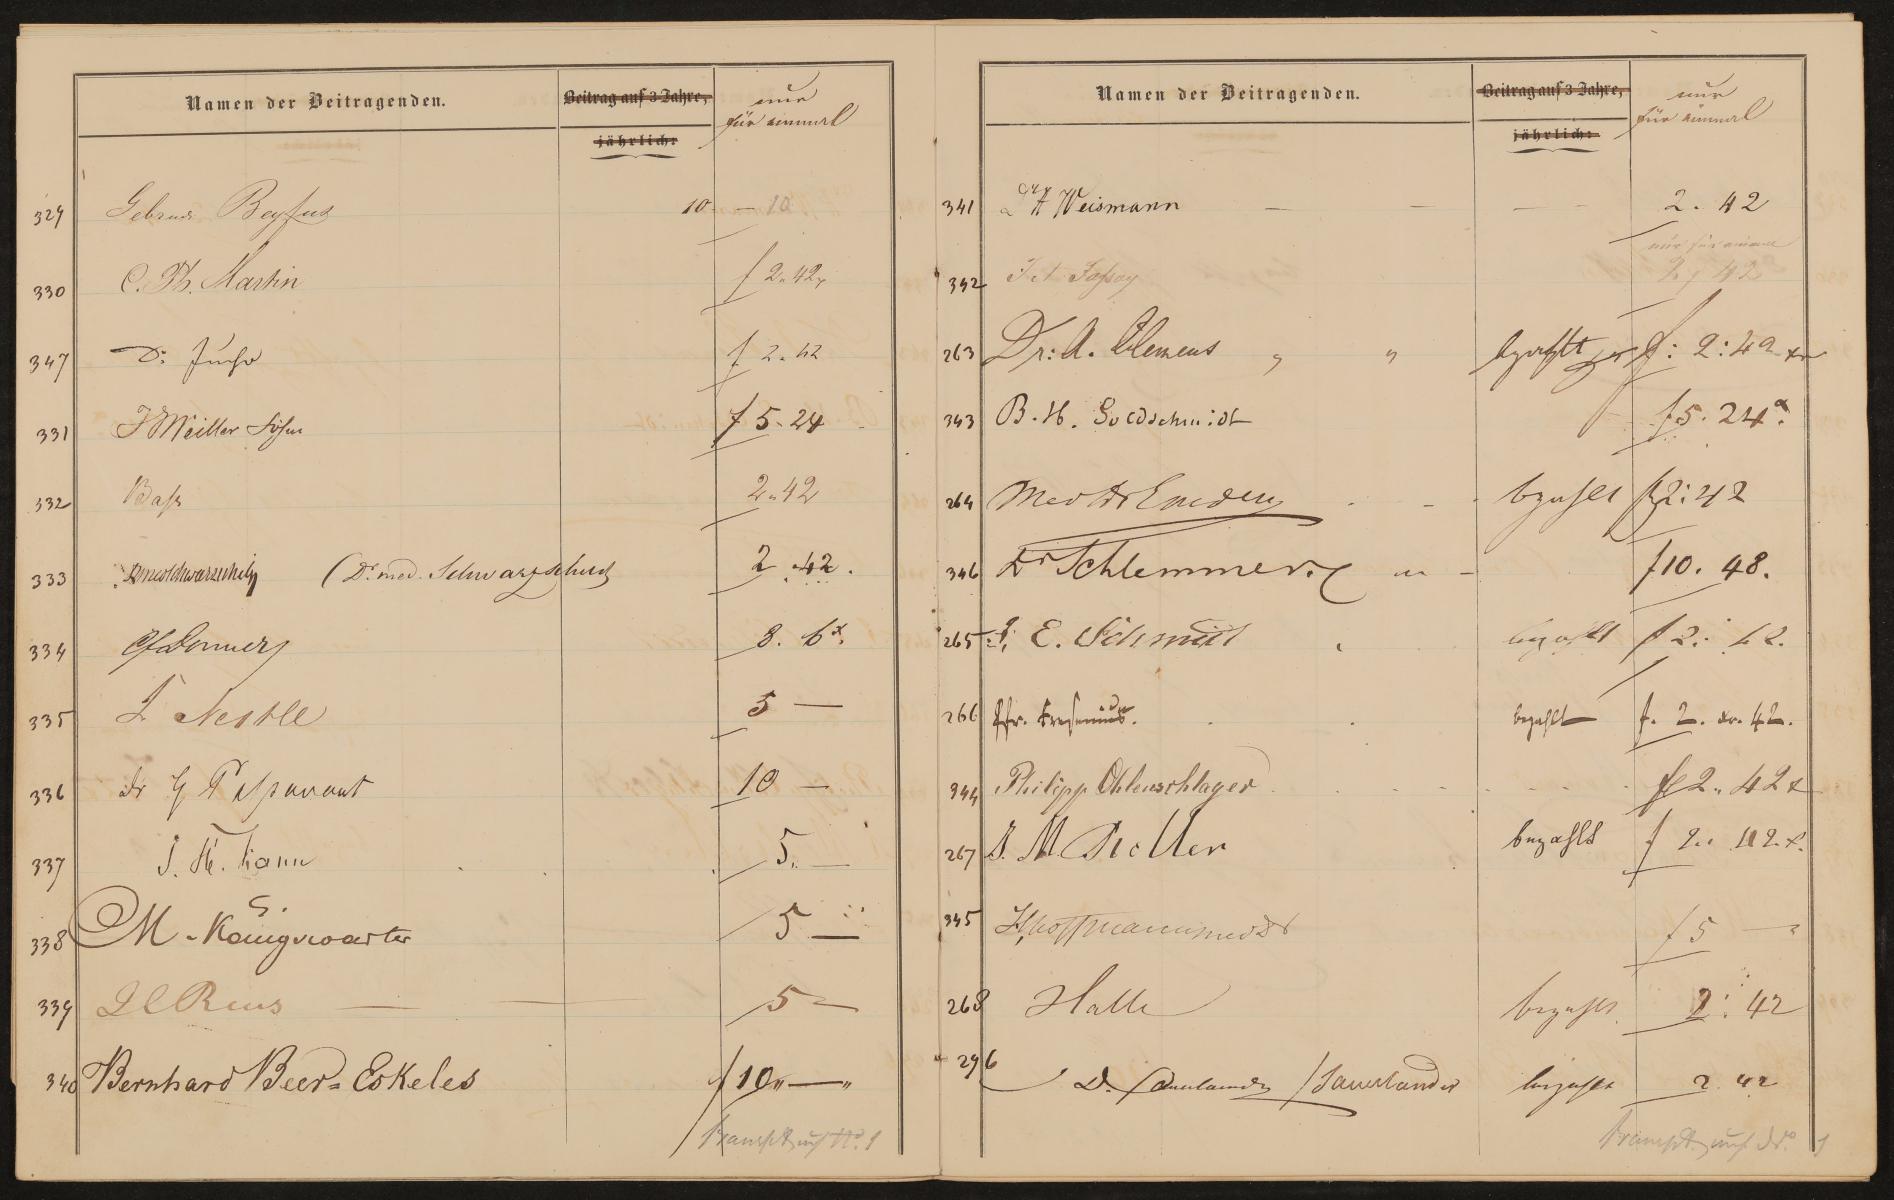 Namen der Beitragenden. Beitrag auf 3 Jahre, jährlich: nur für einmal
329 Gebrüder Beyfus 10 — 10
330 C. Th. Martin f 2. 42x
347 Dr. Jucho f 2. 42
331 J Meiller Söhne f 5. 24
332 Bass 2. 42
333 Dr med Schwarzschild (Dr. med. Schwarzschild 2. 42.
334 Donner 8. 6x.
335 Nestle 5 —
336 Dr G Passavant 10 —
337 J. H. Kann 5. —
338 M. Königswarter 5 —
339 Reus — — 5 —
340 Bernhard Beer-Eskeles f 10 " — "
Transpt auf No. 1
Namen der Beitragenden. Beitrag auf 3 Jahre, jährlich: nur für einmal
341 Dr H Weismann — — — — 2. 42
nur für einmal
342 Jassoy 2, 42
263 Dr: A. Clemens " " bezahlt f: 2: 42 xr
343 B. H. Goldschmidt f 5. 24x.
264 Med Dr Emden bezahlt f 2: 42
346 Dr Schlemmer. f 10. 48.
265 E. Schmidt bezahlt f 2: 42.
266 Pfr. Fresenius. bezahlt f. 2. xr. 42.
344 Philipp Ohlenschlager fl 2. 42 x
267 J. M. Müller bezahlt f 2. 42 x.
345 Hoffmann med Dr f 5 —
268 Halle bezahlt 2: 42
296 D. Sauerländer /Sauerländer bezahlt 2 42
Transpt. auf No. 1